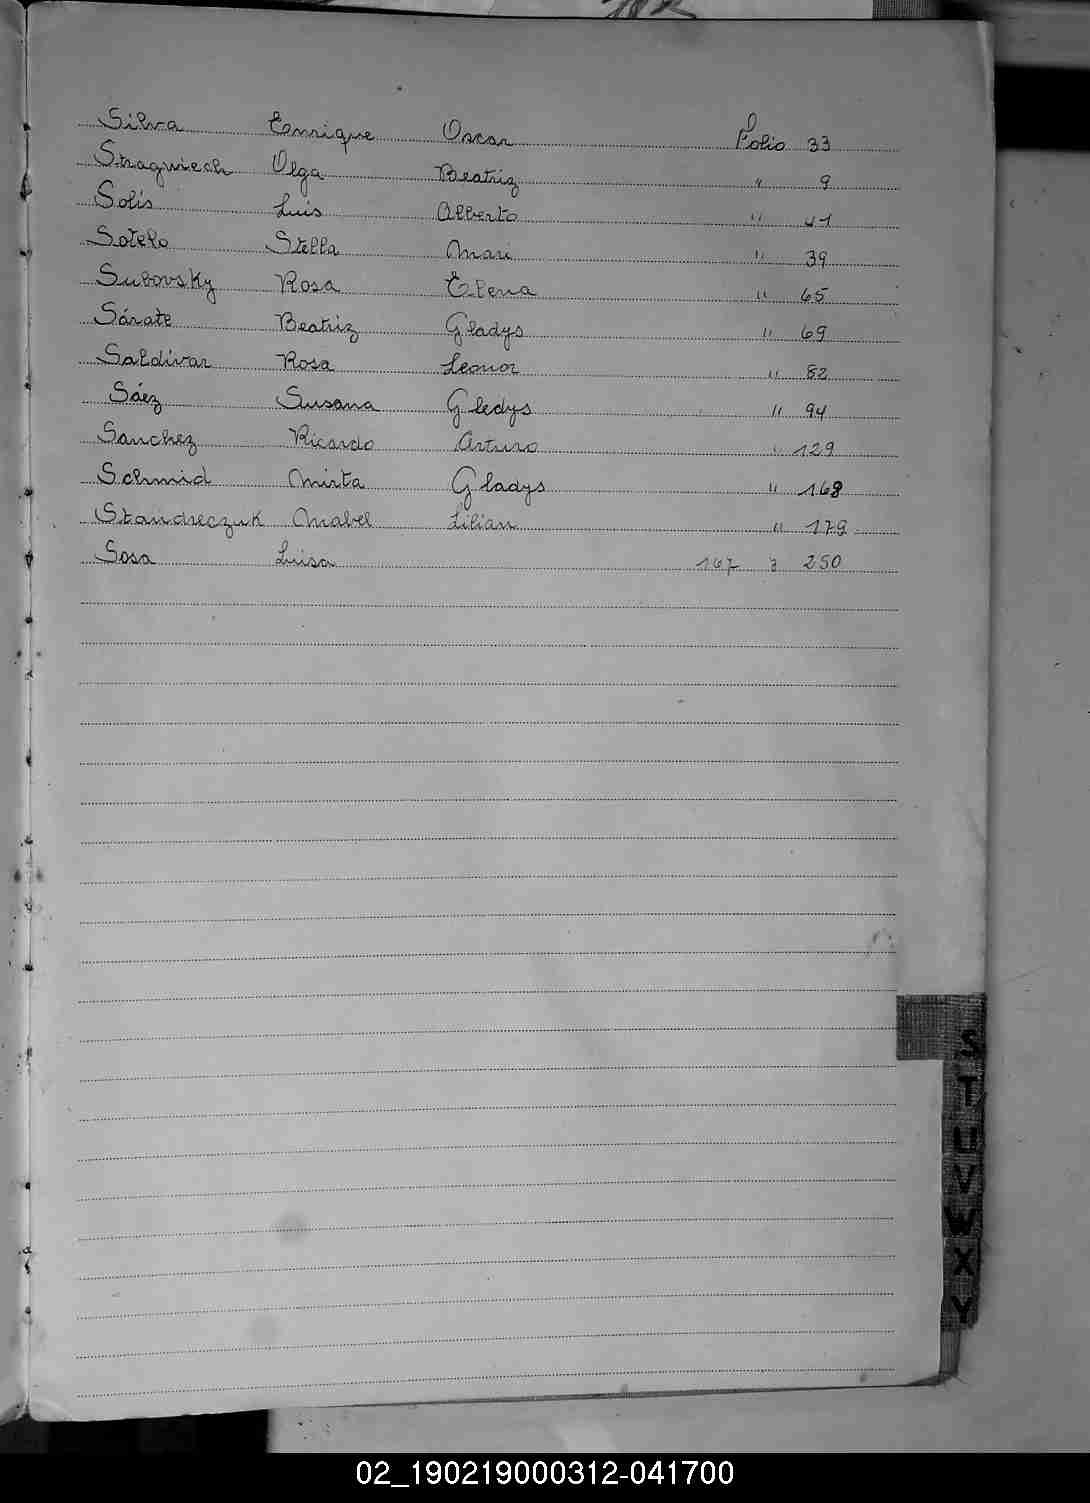 Silva Enrique Oscar Folio 33
Straguiech Olga Beatriz " 9
Solis Luis Alberto " 41
Sotelo Stella Mari " 39
Subovsky Rosa Elena " 65
Sárate Beatriz Gladys " 69
Saldivar Rosa Leonor " 82
Sáez Susana Gledys " 94
Sanchez Ricardo Arturo " 129
Schmid Mirta Gladys " 168
Standreczuk Mabel Lilian " 179
Sosa Luisa 167 250
S
T
U
V
W
X
Y
02_190219000312-041700